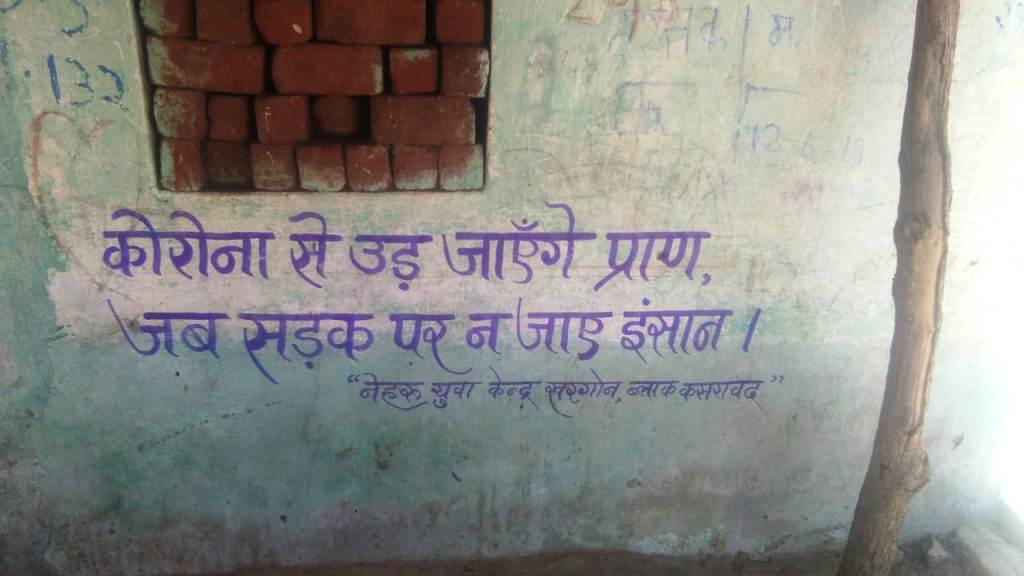 132
12-6-19
कोरोना से उड़ जाएँगे प्राण,
जब सड़क पर न जाए इंसान।
"नेहरू युवा केन्द्र खरगोन, ब्लाक कसरावद"